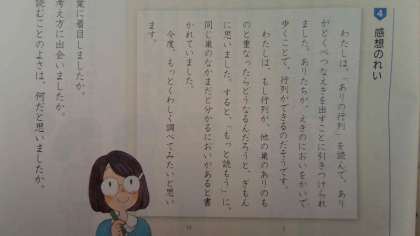 4 感想のれい
わたしは、「ありの行列」を読んで、あり
がとくべつなえきを出すことに引きつけられ
ました。ありたちが、えきのにおいをかいで
歩くことで、行列ができるのだそうです。
わたしは、もし行列が、他の巣のありのも
のと重なったらどうなるんだろうと、ぎもん
に思いました。すると、「もっと読もう」に、
同じ巣のなかまだと分かるにおいがあると書
かれていました。
今度、もっとくわしく調べてみたいと思い
ます。
葉に着目しましたか。
考え方に出会いましたか。
読むことのよさは、何だと思いましたか。